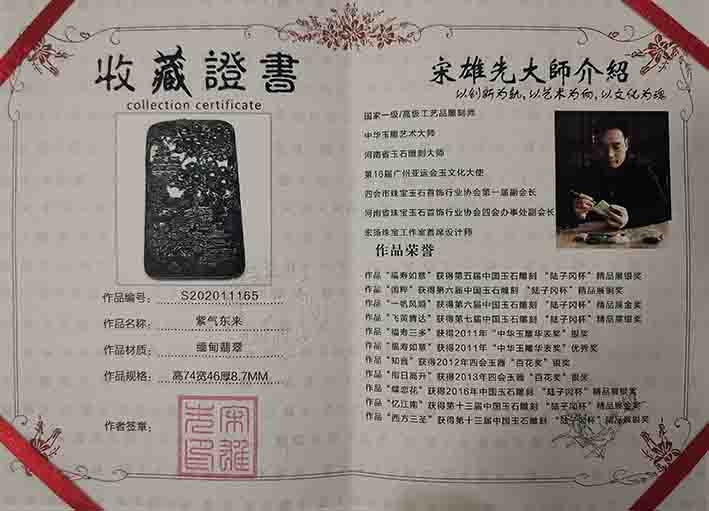 收藏證書
collection certificate
作品编号： S202011165
作品名称： 紫气东来
作品材质： 缅甸翡翠
作品规格： 高74宽46厚8.7MM
作者签章：
宋雄先印
宋雄先大師介紹
以创新为轨，以艺术为向，以文化为魂
国家一级/高级工艺品雕刻师
中华玉雕艺术大师
河南省玉石雕刻大师
第16届广州亚运会玉文化大使
四会市珠宝玉石首饰行业协会第一届副会长
河南省珠宝玉石首饰行业协会四会办事处副会长
宏扬珠宝工作室首席设计师
作品荣誉
作品“福寿如意”获得第五届中国玉石雕刻 “陆子冈杯”精品展银奖
作品“国粹”获得第六届中国玉石雕刻 “陆子冈杯”精品展铜奖
作品“一帆风顺”获得第六届中国玉石雕刻 “陆子冈杯”精品展金奖
作品“飞黄腾达”获得第七届中国玉石雕刻 “陆子冈杯”精品展银奖
作品“福寿三多”获得2011年“中华玉雕华表奖”银奖
作品“福寿如意”获得2011年“中华玉雕华表奖”优秀奖
作品“知音”获得2012年四会玉器“百花奖”银奖
作品“指日高升”获得2013年四会玉器“百花奖”银奖
作品“蝶恋花”获得2016年中国玉石雕刻 “陆子冈杯”精品展银奖
作品“忆江南”获得第十三届中国玉石雕刻 “陆子冈杯”精品展金奖
作品“西方三圣”获得第十三届中国玉石雕刻 “陆子冈杯”精品展银奖